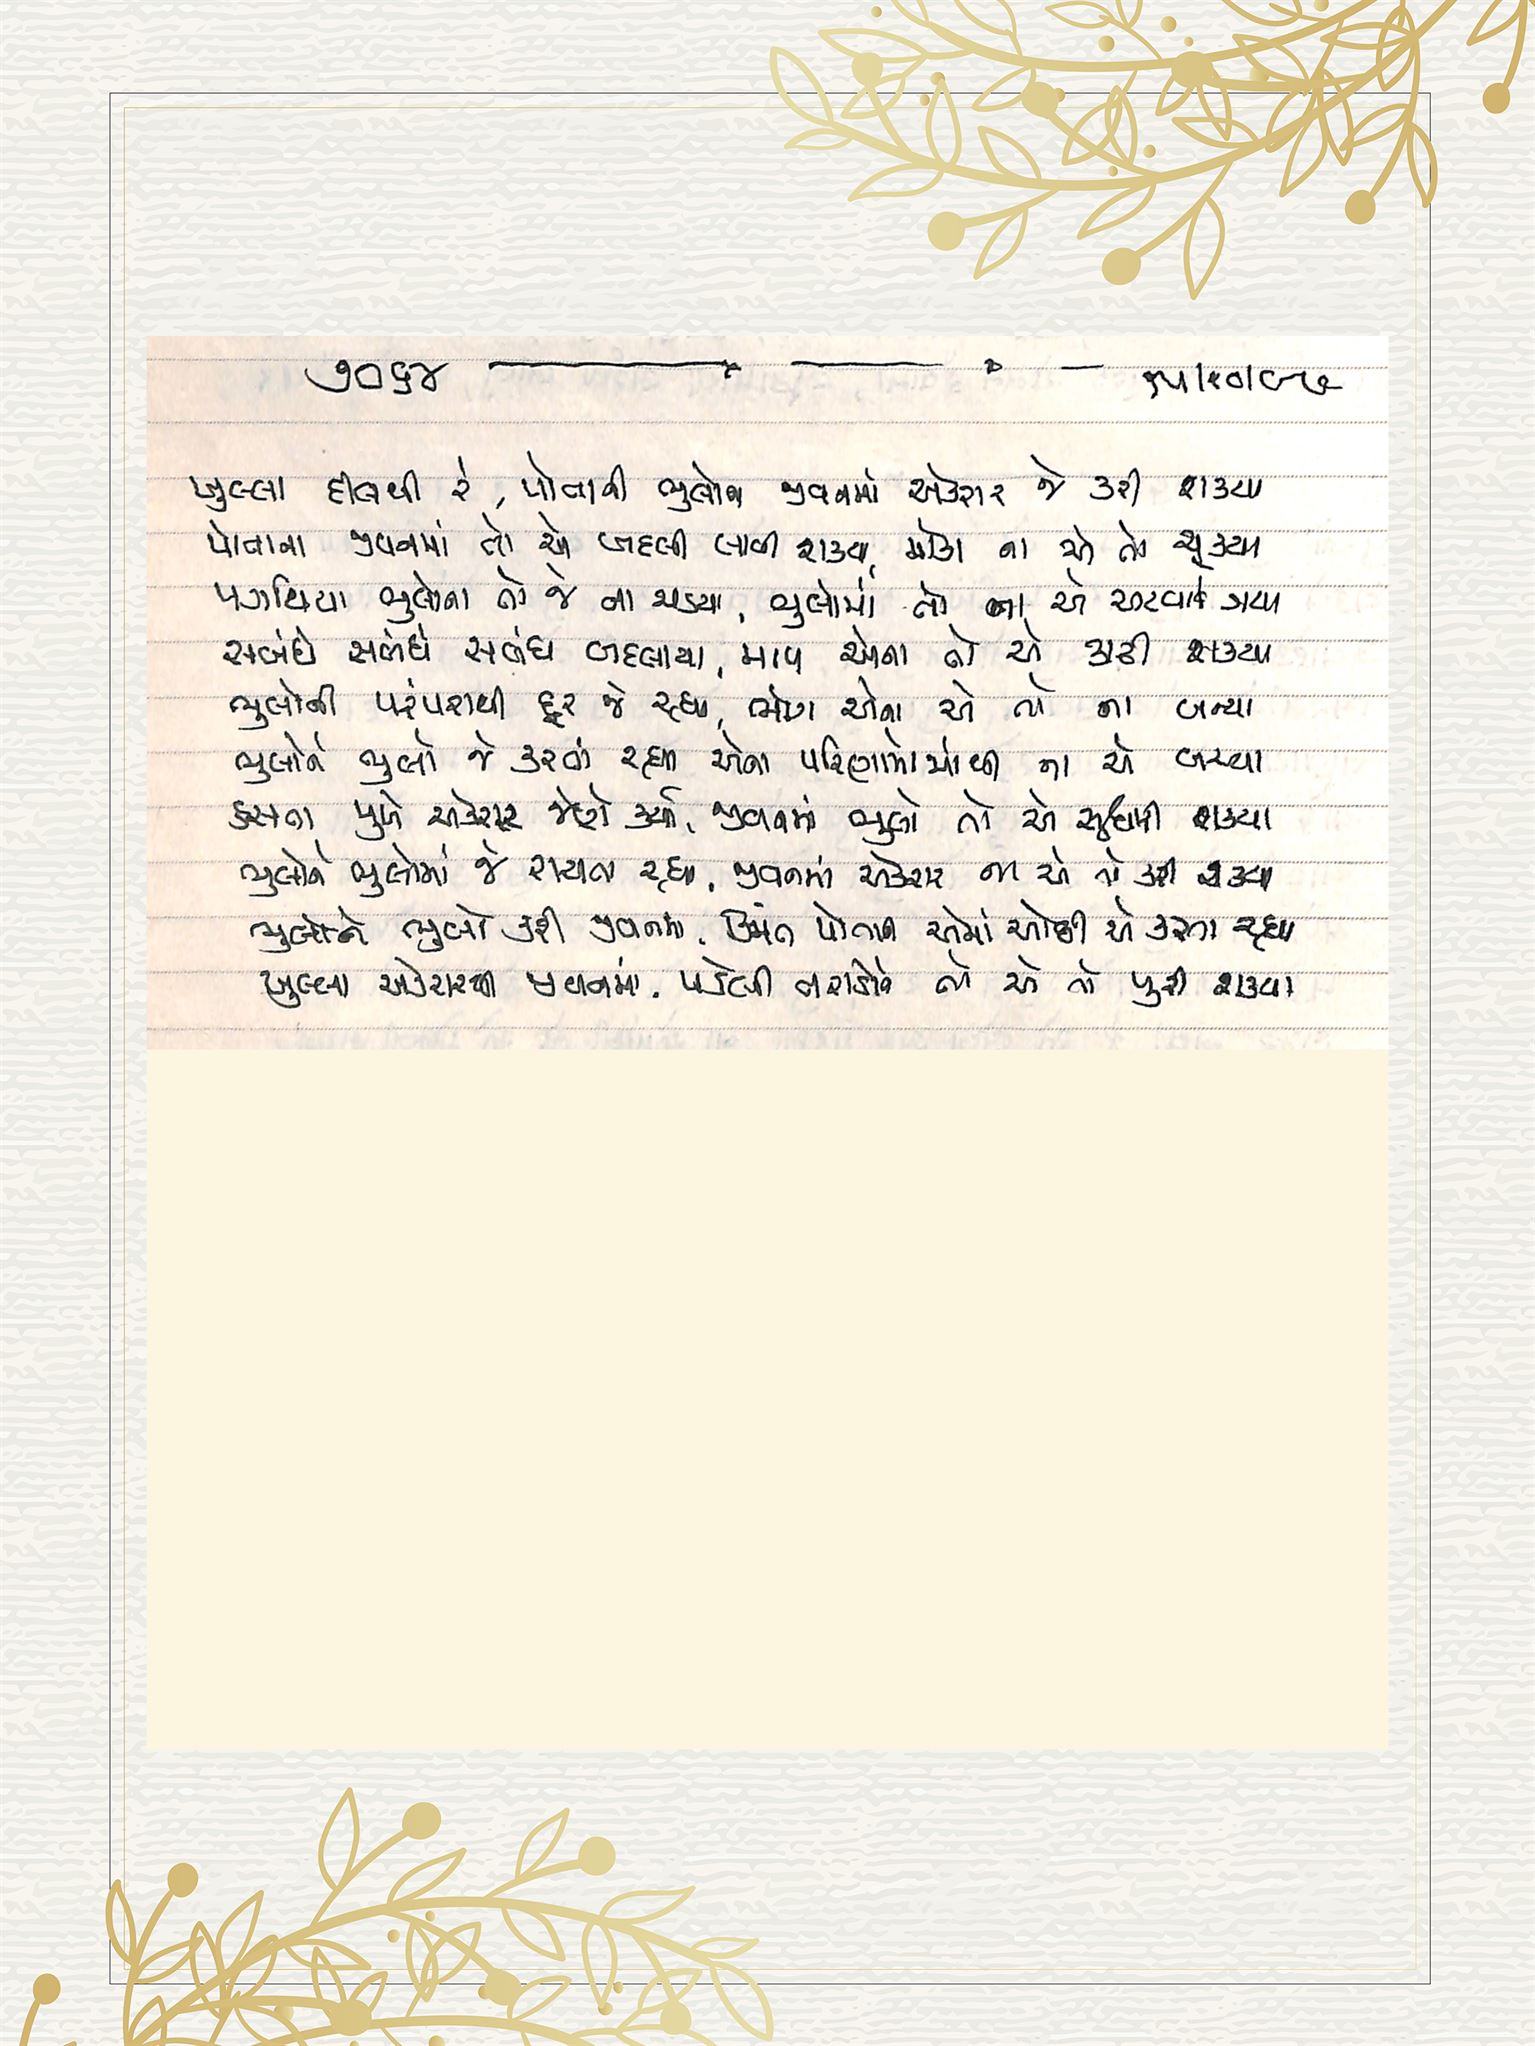 ૭૦૬૪
ખુલ્લા દીલથી રે, પોતાની ભુલોનો જીવનમાં એકરાર જે કરી શક્યા
પોતાના જીવનમાં તો એ બદલી લાવી શક્યા, મોકો ના એ તો ચૂક્યા
પગથિયા ભુલોના તો જે ના ચડયા, ભુલોમાં તો ના એ અટવાઈ ગયા
સબંધે સબંધે સબંધ બદલાયા, માપ એના તો એ કાઢી શક્યા
ભુલોની પરંપરાથી દૂર જે રહ્યા, ભોગ એના એ તો ના બન્યા
ભુલોને ભુલો જે કરતાં રહ્યા એના પરિણામોમાંથી ના એ બચ્યા
હસતા મુખે એકરાર જેણે કર્યો, જીવનમાં ભુલો તો એ સુધારી શક્યા
ભુલોને ભુલોમાં જે રાચતા રહ્યા, જીવનમાં એકરાર ના એ તો કરી શક્યા
ભુલોને ભુલો કરી જીવનમાં, કિંમત પોતાની એમાં ઓછી એ કરતા રહ્યા
ખુલ્લા એકરારથી જીવનમાં, પડેલી તિરાડોને તો એ તો પુરી શક્યા